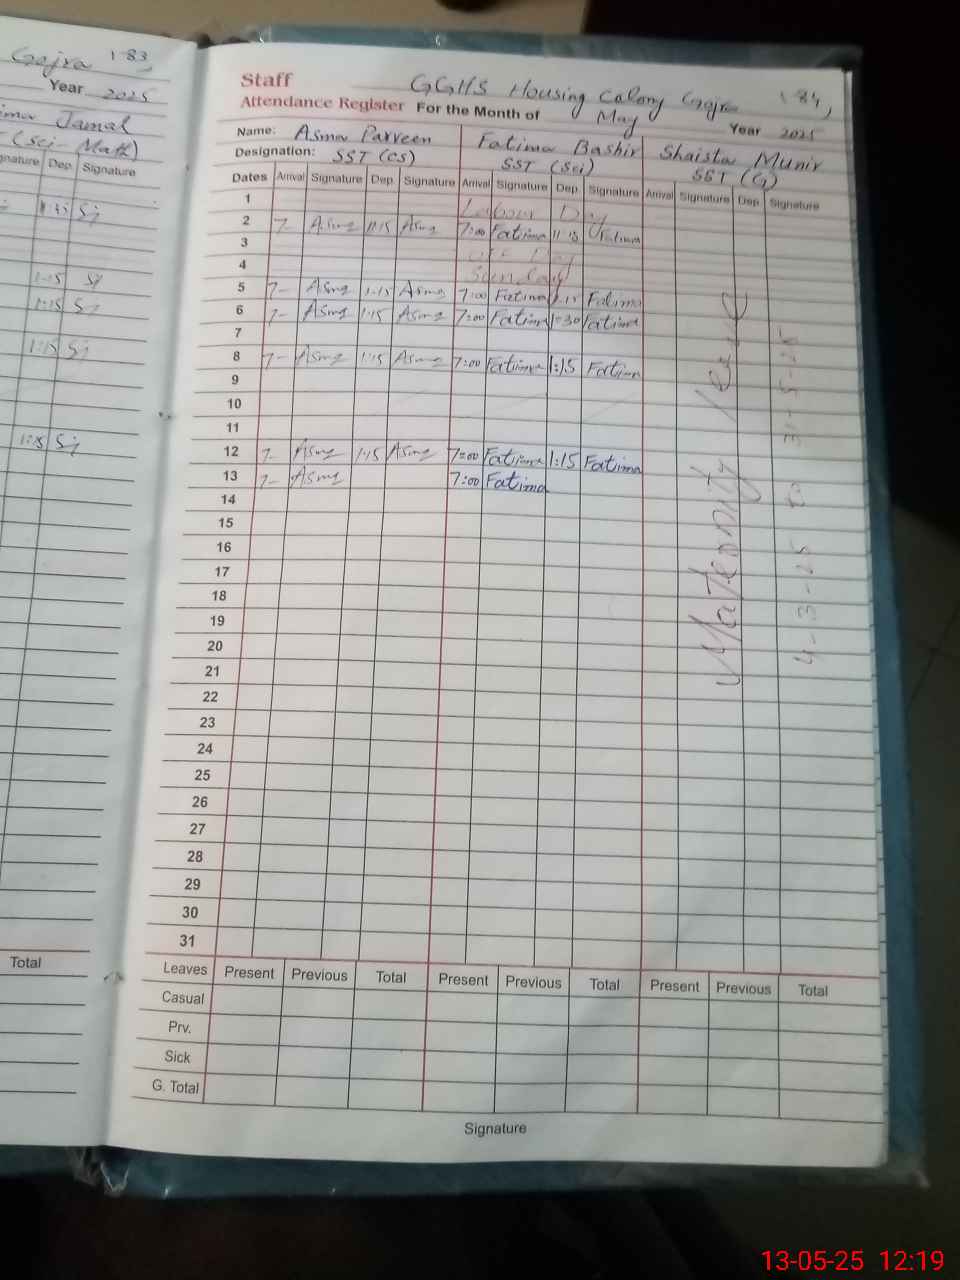 Gojra 183,
Year 2025
Jamal
(Sci-Math)
Dep. Signature
1:15 Sj
1:15 Sj
1:15 Sj
1:15 Sj
Total
Staff GGHS Housing Colony Gojra 184,
Attendance Register For the Month of May Year 2025
Name: Asma Parveen Fatima Bashir Shaista Munir
Designation: SST (CS) SST (Sci) SST (G)
Dates Arrival Signature Dep. Signature Arrival Signature Dep. Signature Arrival Signature Dep. Signature
1 Labour Day
2 7- Asma 11:15 Asma 7:00 Fatima 11:15 Fatima
3 Off Day
4 Sunday
5 7- Asma 1:15 Asma 7:00 Fatima 1:15 Fatima
6 7- Asma 1:15 Asma 7:00 Fatima 1:30 Fatima
7
8 7- Asma 1:15 Asma 7:00 Fatima 1:15 Fatima
9
10
11
12 7- Asma 1:15 Asma 7:00 Fatima 1:15 Fatima
13 7- Asma 7:00 Fatima
14
15
16
17
18
19
20
21
22
23
24
25
26
27
28
29
30
31
Maternity leave
4-3-25 to 31-5-25
Leaves Present Previous Total Present Previous Total Present Previous Total
Casual
Prv.
Sick
G. Total
Signature
13-05-25 12:19